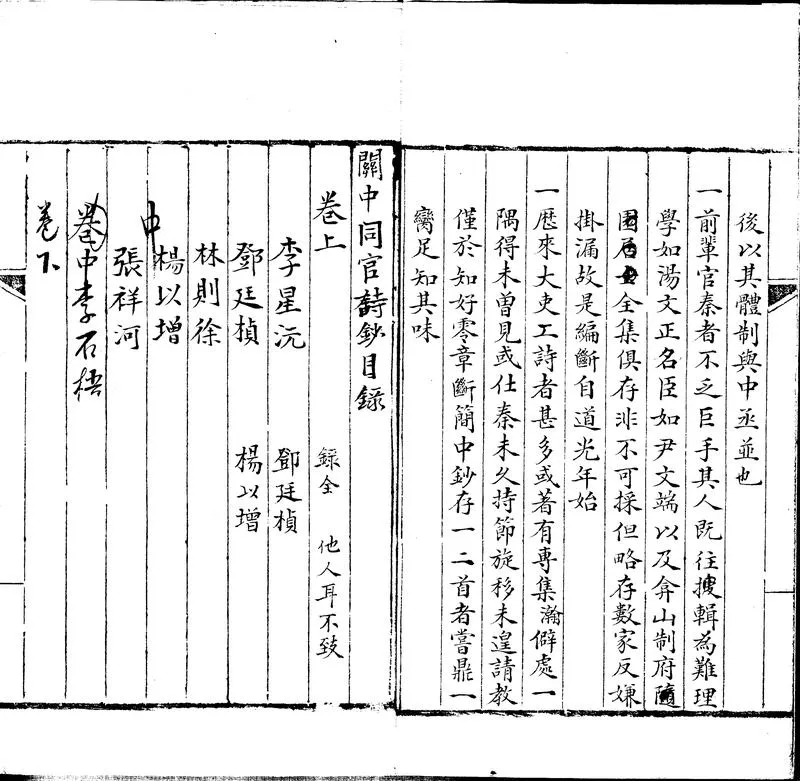 後以其體制與中丞並也
一前輩官秦者不乏巨手其人既往搜輯為難理
學如湯文正名臣如尹文端以及弇山制府隨
園居士全集俱存非不可採但略存數家反嫌
掛漏故是編斷自道光年始
一歷來大吏工詩者甚多或著有專集瀚僻處一
隅得未曾見或仕秦未久持節旋移未遑請教
僅於知好零章斷簡中鈔存一二首者嘗鼎一
臠足知其味
關中同官詩鈔目錄
卷上 錄全 他人耳不致
李星沅 鄧廷楨
鄧廷楨 楊以增
林則徐
中 楊以增
張祥河
卷中李石梧
卷下